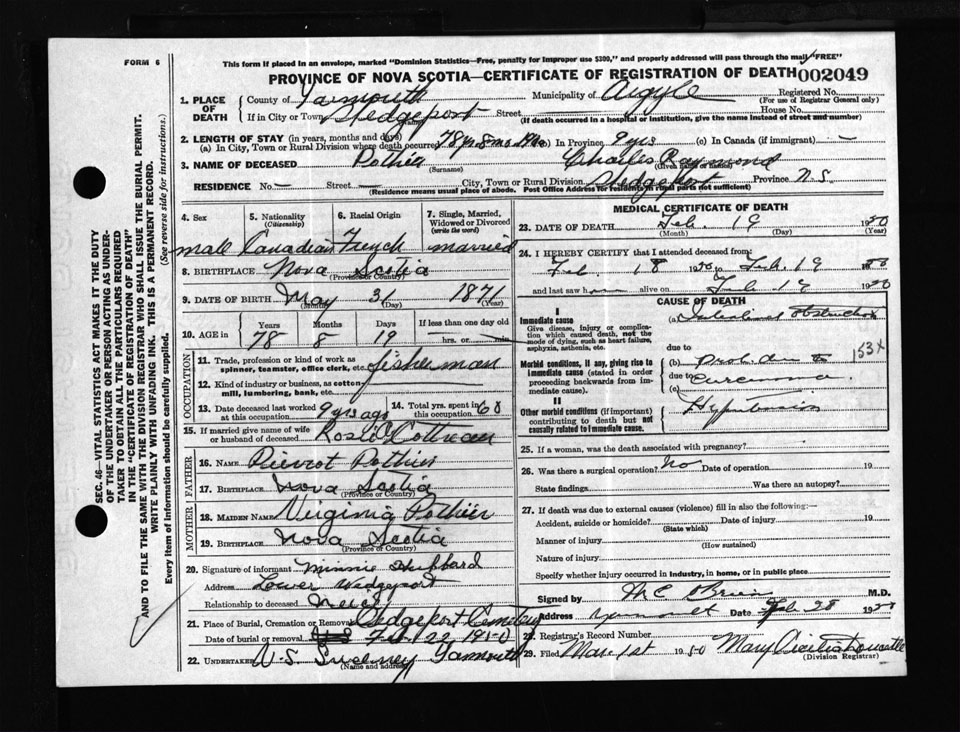 FORM 6
This form if placed in an envelope, marked "Dominion Statistics—Free, penalty for improper use $300," and properly addressed will pass through the mail "FREE"
PROVINCE OF NOVA SCOTIA—CERTIFICATE OF REGISTRATION OF DEATH 002049
1. PLACE OF DEATH
County of Yarmouth Municipality of Argyle Registered No.
(For use of Registrar General only)
If in City or Town Wedgeport Street House No.
(If death occurred in a hospital or institution, give the name instead of street and number)
2. LENGTH OF STAY (in years, months and days)
(a) In City, Town or Rural Division where death occurred 78 yrs 8 mo (b) In Province 9 yrs (c) In Canada (if immigrant) —
3. NAME OF DECEASED Pothier Charles Raymond
(Surname) (Given name or names)
RESIDENCE No. — Street — City, Town or Rural Division Wedgeport Province N.S.
(Residence means usual place of abode. Post Office Address for residents in rural parts not sufficient)
4. Sex 5. Nationality (Citizenship) 6. Racial Origin 7. Single, Married, Widowed or Divorced (write the word)
male Canadian French married
8. BIRTHPLACE Nova Scotia
(Province or Country)
9. DATE OF BIRTH May 31 1871
(Month) (Day) (Year)
10. AGE in Years Months Days If less than one day old
78 8 19 hrs. or min.
OCCUPATION
11. Trade, profession or kind of work as spinner, teamster, office clerk, etc. fisherman
12. Kind of industry or business, as cotton-mill, lumbering, bank, etc.
13. Date deceased last worked at this occupation 9 yrs ago 14. Total yrs. spent in this occupation 60
15. If married give name of wife or husband of deceased Rosie Cottreau
FATHER
16. NAME Pierrot Pothier
17. BIRTHPLACE Nova Scotia
(Province or Country)
MOTHER
18. MAIDEN NAME Virginia Pothier
19. BIRTHPLACE Nova Scotia
(Province or Country)
20. Signature of informant Minnie Hubbard
Address Lower Wedgeport
Relationship to deceased Neice
21. Place of Burial, Cremation or Removal Wedgeport Cemetery
Date of burial or removal Feb 22 1950
22. UNDERTAKER V.S. Sweeney Yarmouth
(Name and address)
MEDICAL CERTIFICATE OF DEATH
23. DATE OF DEATH Feb. 19 1950
(Month) (Day) (Year)
24. I HEREBY CERTIFY that I attended deceased from:
Feb. 18 1950 to Feb. 19 1950
and last saw h alive on Feb 19 1950
CAUSE OF DEATH
I
Immediate cause
Give disease, injury or complication which caused death, not the mode of dying, such as heart failure, asphyxia, asthenia, etc.
(a) Intestinal Obstruction
due to
Morbid conditions, if any, giving rise to immediate cause (stated in order proceeding backwards from immediate cause).
(b) Prob. due to
due to Carcinoma
(c)
153X
II
Other morbid conditions (if important) contributing to death but not causally related to immediate cause.
25. If a woman, was the death associated with pregnancy?
26. Was there a surgical operation? No Date of operation 19
State findings Was there an autopsy?
27. If death was due to external causes (violence) fill in also the following:—
Accident, suicide or homicide? Date of injury 19
(State which)
Manner of injury
(How sustained)
Nature of injury
Specify whether injury occurred in industry, in home, or in public place
Signed by O'Brien M.D.
Address Yarmouth Date Feb. 28 1950
28. Registrar's Record Number
29. Filed Mar. 1st 1950 Mary
(Division Registrar)
SEC. 46—VITAL STATISTICS ACT MAKES IT THE DUTY
OF THE UNDERTAKER OR PERSON ACTING AS UNDER-
TAKER TO OBTAIN ALL THE PARTICULARS REQUIRED
IN THE "CERTIFICATE OF REGISTRATION OF DEATH"
AND TO FILE THE SAME WITH THE DIVISION REGISTRAR WHO SHALL ISSUE THE BURIAL PERMIT.
WRITE PLAINLY WITH UNFADING INK. THIS IS A PERMANENT RECORD.
Every item of information should be carefully supplied. (See reverse side for instructions.)